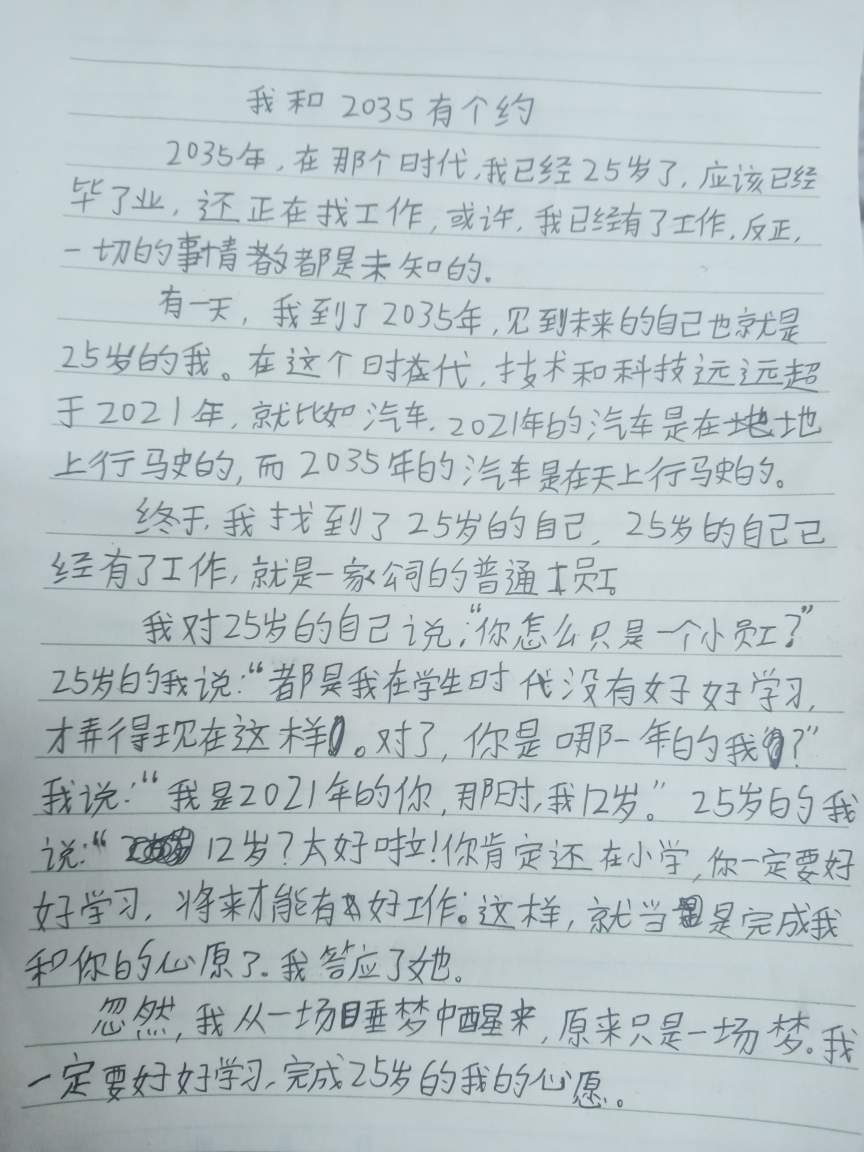 我和2035有个约
2035年，在那个时代，我已经25岁了，应该已经
毕了业，还正在找工作，或许，我已经有了工作，反正，
一切的事情都是未知的。
有一天，我到了2035年，见到未来的自己也就是
25岁的我。在这个时代，技术和科技远远超
于2021年，就比如汽车，2021年的汽车是在地
上行驶的，而2035年的汽车是在天上行驶的。
终于，我找到了25岁的自己，25岁的自己已
经有了工作，就是一家公司的普通员工
我对25岁的自己说：“你怎么只是一个小员工？”
25岁的我说：“都是我在学生时代没有好好学习，
才弄得现在这样。对了，你是哪一年的我？”
我说：“我是2021年的你，那时，我12岁。”25岁的我
说：“12岁？太好啦！你肯定还在小学，你一定要好
好学习，将来才能有好工作。这样，就当是完成我
和你的心原了。我答应了她。
忽然，我从一场睡梦中醒来，原来只是一场梦。我
一定要好好学习，完成25岁的我的心愿。